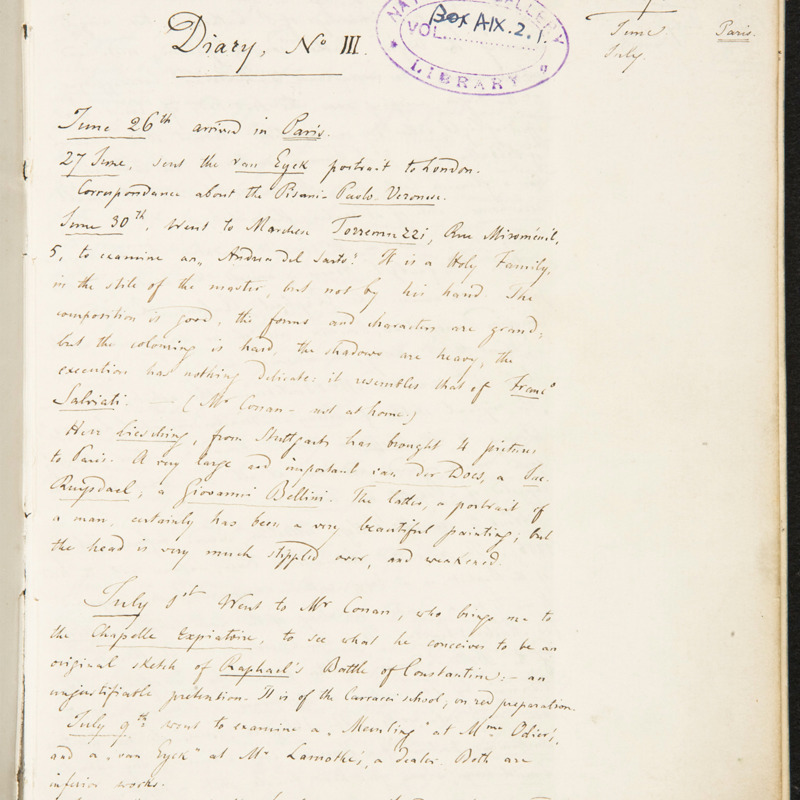 NATIONAL GALLERY
BOX A.IX.2.1.
VOL.
LIBRARY
Diary, No III.
June Paris.
July.
June 26th arrived in Paris.
27 June, sent the van Eyck portrait to London.
Correspondance about the Pisani-Paolo Veronese.
June 30th. Went to Marchese Torremuzzi, Rue Miroménil,
5, to examine an „Andrea del Sarto". It is a Holy Family,
in the stile of the master, but not by his hand. The
composition is good, the forms and characters are grand;
but the colouring is hard, the shadows are heavy, the
execution has nothing delicate: it resembles that of Franco
Salviati. — (Mr Conan - not at home.)
Herr Liesching, from Stuttgart has brought 4 pictures
to Paris. A very large and important van der Does, a Jac.
Ruysdael, a Giovanni Bellini. The latter, a portrait of
a man, certainly has been a very beautiful painting; but
the head is very much stippled over, and weakened.
July 1st Went to Mr Conan, who brings me to
the Chapelle Expiatoire, to see what he conceives to be an
original sketch of Raphael's Battle of Constantine: - an
unjustifiable prétention. It is of the Carracci school, on red preparation.
July 9th went to examine a „Memling" at Mme Odier's,
and a „van Eyck" at Mr Lamothe's, a dealer. Both are
inferior works.